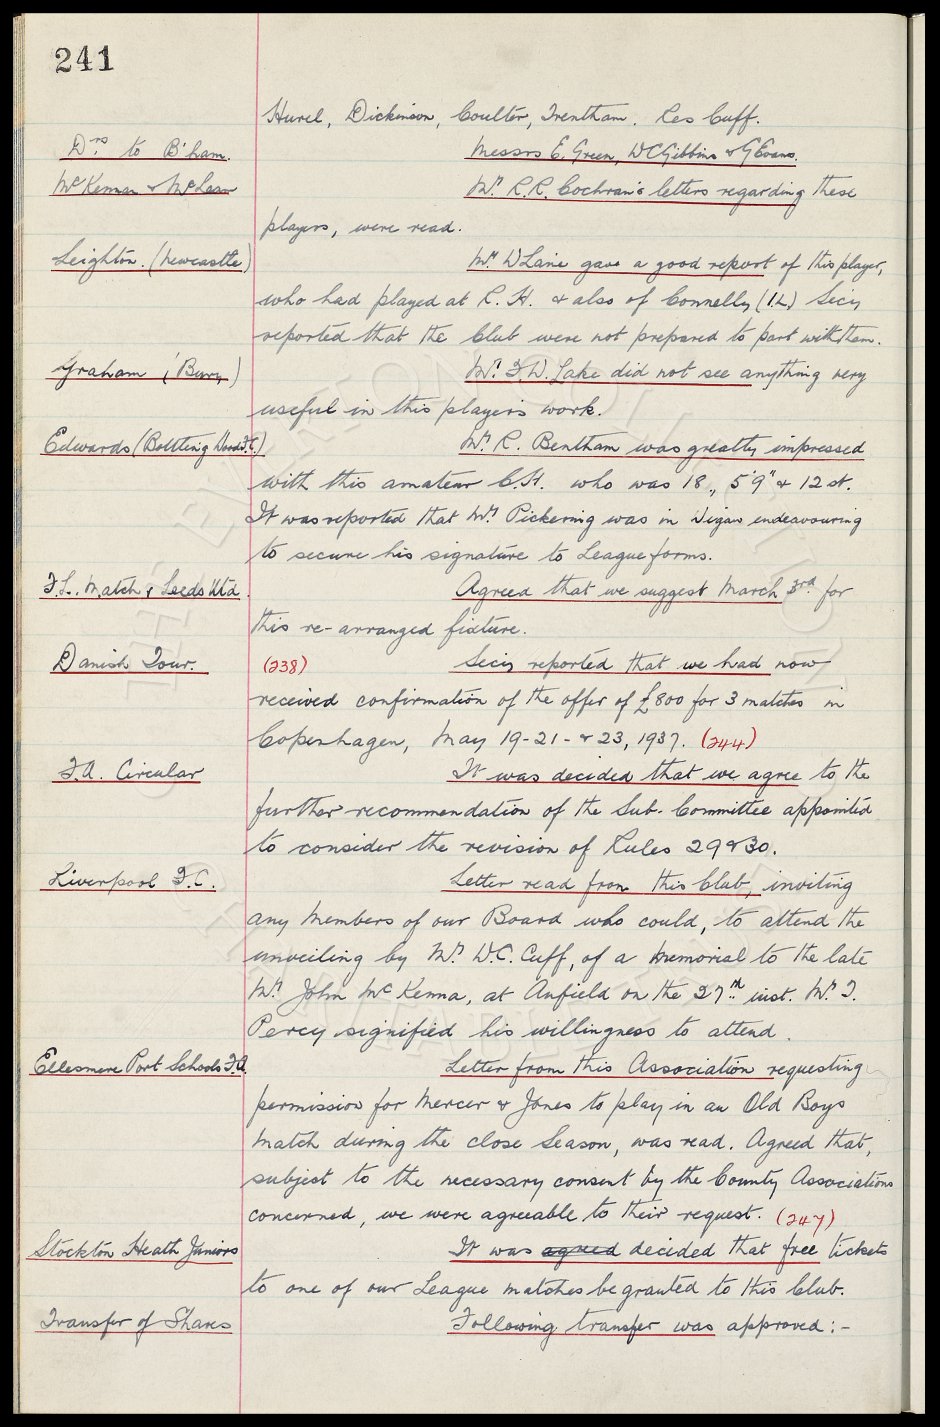 241
Hurel, Dickinson, Coulter, Trentham. Res Cuff.
Drs to B'ham. Messrs E. Green, W C Gibbins & G Evans.
McKennan & McLean Mr. R. R. Cochran's letters regarding these
players, were read.
Leighton. (Newcastle) Mr. W Laine gave a good report of this player,
who had played at R. H. & also of Connelly (I.L.) Secy
reported that the Club were not prepared to part with them.
Graham (Bury) Mr. F. W. Lake did not see anything very
useful in this player's work.
Edwards (Bolting Wood F.C.) Mr. R. Bentham was greatly impressed
with this amateur C.H. who was 18, 5'9" & 12 st.
It was reported that Mr. Pickering was in Wigan endeavouring
to secure his signature to League forms.
F.L. Match v Leeds Utd. Agreed that we suggest March 3rd. for
this re-arranged fixture.
Danish Tour. (238) Secy reported that we had now
received confirmation of the offer of £800 for 3 matches in
Copenhagen, May 19-21- & 23, 1937. (244)
F.A. Circular It was decided that we agree to the
further recommendation of the Sub-Committee appointed
to consider the revision of Rules 29 & 30.
Liverpool F.C. Letter read from this Club, inviting
any Members of our Board who could, to attend the
unveiling by Mr. W.C. Cuff, of a memorial to the late
Mr. John McKenna, at Anfield on the 27th inst. Mr. T.
Percy signified his willingness to attend.
Ellesmere Port Schools F.A. Letter from this Association requesting
permission for Mercer & Jones to play in an Old Boys
Match during the close Season, was read. Agreed that,
subject to the necessary consent by the County Associations
concerned, we were agreeable to their request. (247)
Stockton Heath Juniors It was agreed decided that free tickets
to one of our League matches be granted to this Club.
Transfer of Shares Following transfer was approved:-